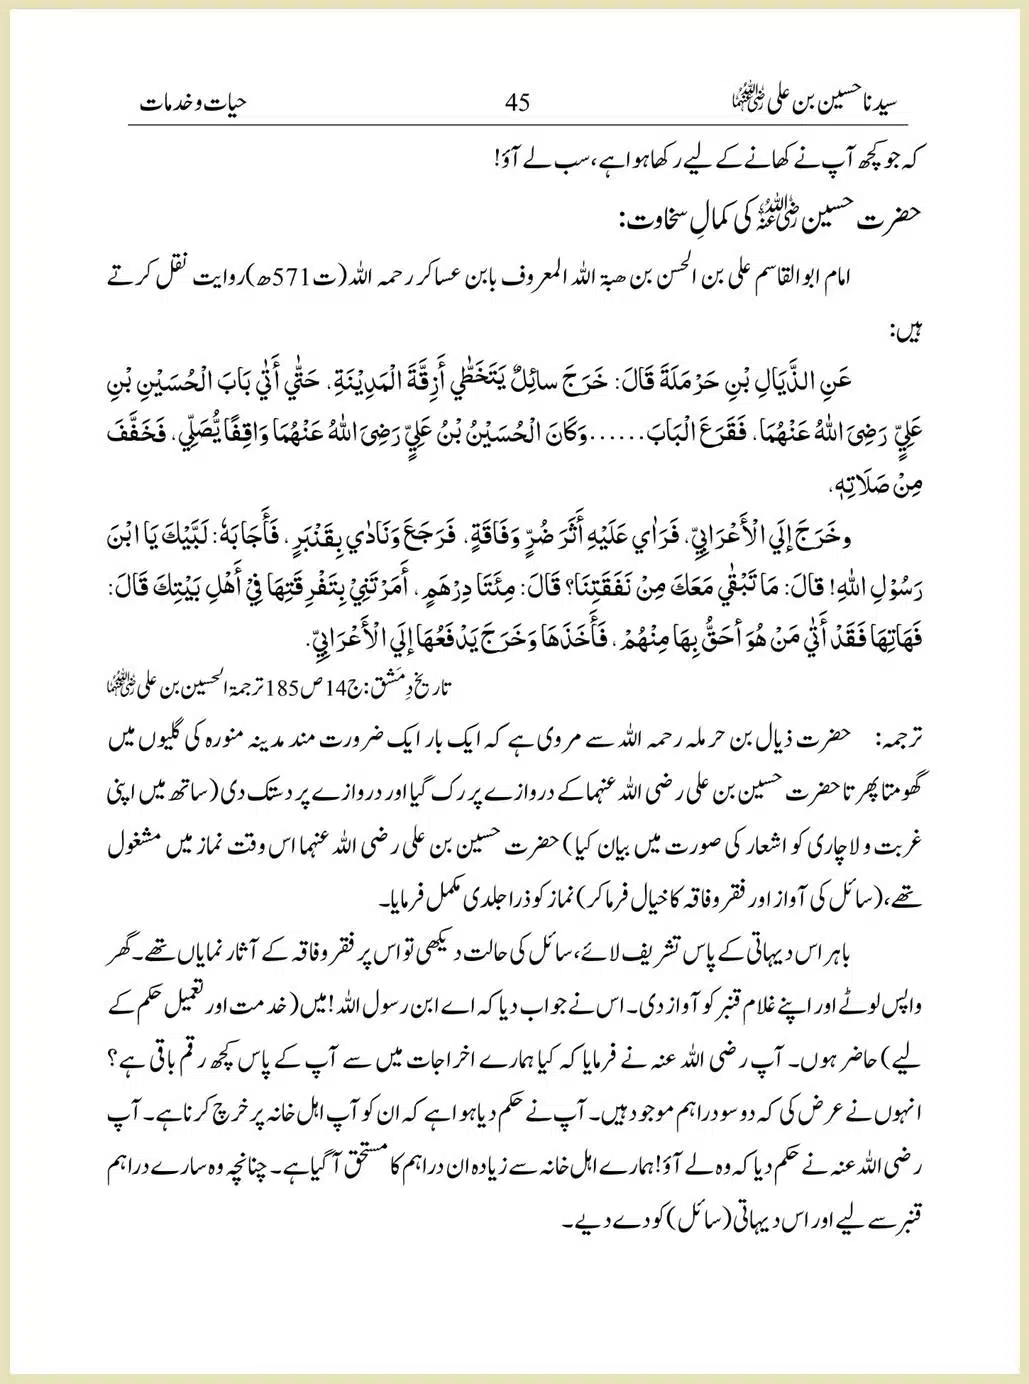 سیدنا حسین بن علی رضی اللہ عنہما 45 حیات و خدمات
کہ جو کچھ آپ نے کھانے کے لیے رکھا ہوا ہے، سب لے آؤ!
حضرت حسین رضی اللہ عنہ کی کمالِ سخاوت:
امام ابو القاسم علی بن الحسن بن ھبۃ اللہ المعروف بابن عساکر رحمہ اللہ (ت571ھ) روایت نقل کرتے
ہیں:
عَنِ الذَّيَالِ بْنِ حَرْمَلَةَ قَالَ: خَرَجَ سائِلٌ يَتَخَطّٰي أَزِقَّةَ الْمَدِيْنَةِ، حَتّٰي أَتٰي بَابَ الْحُسَيْنِ بْنِ
عَلِيٍّ رَضِيَ اللهُ عَنْهُمَا، فَقَرَعَ الْبَابَ......وَكَانَ الْحُسَيْنُ بْنُ عَلِيٍّ رَضِيَ اللهُ عَنْهُمَا وَاقِفًا يُّصَلِّي، فَخَفَّفَ
مِنْ صَلَاتِهٖ،
وخَرَجَ إلَي الْأَعْرَابِيِّ، فَرَاٰي عَلَيْهِ أَثَرَ ضُرٍّ وَفَاقَةٍ، فَرَجَعَ وَنَادٰي بِقَنْبَرٍ، فَأَجَابَهٗ: لَبَّيْكَ يَا ابْنَ
رَسُوْلِ اللهِ! قالَ: مَا تَبْقٰي مَعَكَ مِنْ نَفَقَتِنَا؟ قَالَ: مِئَتَا دِرْهَمٍ، أَمَرْتَنِيْ بِتَفْرِقَتِهَا فِيْ أَهْلِ بَيْتِكَ قَالَ:
فَهَاتِهَا فَقَدْ أَتٰي مَنْ هُوَ أحَقُّ بِهَا مِنْهُمْ، فَأَخَذَهَا وَخَرَجَ يَدْفَعُهَا إلَي الْأَعْرَابِيِّ.
تاریخ دِمَشق: ج14 ص185 ترجمۃ الحسین بن علی رضی اللہ عنہما
ترجمہ: حضرت ذیال بن حرملہ رحمہ اللہ سے مروی ہے کہ ایک بار ایک ضرورت مند مدینہ منورہ کی گلیوں میں
گھومتا پھر تا حضرت حسین بن علی رضی اللہ عنہما کے دروازے پر رک گیا اور دروازے پر دستک دی (ساتھ میں اپنی
غربت و لاچاری کو اشعار کی صورت میں بیان کیا) حضرت حسین بن علی رضی اللہ عنہما اس وقت نماز میں مشغول
تھے، (سائل کی آواز اور فقر و فاقہ کا خیال فرما کر) نماز کو ذرا جلدی مکمل فرمایا۔
باہر اس دیہاتی کے پاس تشریف لائے، سائل کی حالت دیکھی تو اس پر فقر و فاقہ کے آثار نمایاں تھے۔ گھر
واپس لوٹے اور اپنے غلام قنبر کو آواز دی۔ اس نے جواب دیا کہ اے ابن رسول اللہ! میں (خدمت اور تعمیل حکم کے
لیے) حاضر ہوں۔ آپ رضی اللہ عنہ نے فرمایا کہ کیا ہمارے اخراجات میں سے آپ کے پاس کچھ رقم باقی ہے؟
انہوں نے عرض کی کہ دو سو دراہم موجود ہیں۔ آپ نے حکم دیا ہوا ہے کہ ان کو آپ اہل خانہ پر خرچ کرنا ہے۔ آپ
رضی اللہ عنہ نے حکم دیا کہ وہ لے آؤ! ہمارے اہل خانہ سے زیادہ ان دراہم کا مستحق آ گیا ہے۔ چنانچہ وہ سارے دراہم
قنبر سے لیے اور اس دیہاتی (سائل) کو دے دیے۔